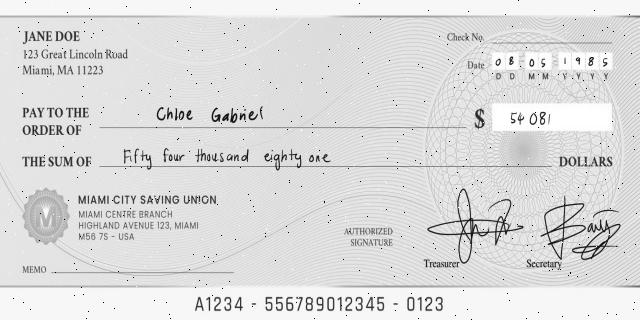 JANE DOE
123 Great Lincoln Road
Miami, MA 11223
Check No.
Date 08 05 1985
D D M M Y Y Y Y
PAY TO THE
ORDER OF Chloe Gabriel $ 54 081
THE SUM OF Fifty four thousand eighty one DOLLARS
MIAMI CITY SAVING UNION
MIAMI CENTRE BRANCH
HIGHLAND AVENUE 123, MIAMI
M56 7S - USA
AUTHORIZED
SIGNATURE
Treasurer
Secretary
MEMO
A1234 - 556789012345 - 0123